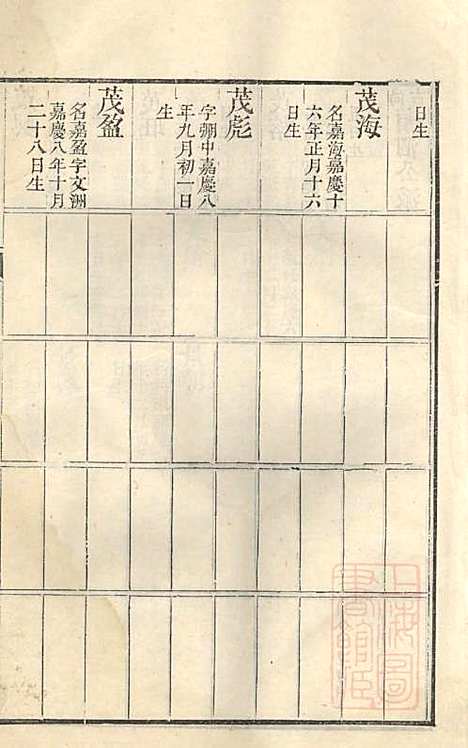 日生
茂海
名嘉海嘉慶十
六年正月十六
日生
茂彪
字弸中嘉慶八
年九月初一日
生
茂盈
名嘉盈字文洲
嘉慶八年十月
二十八日生
上海圖
書館臧